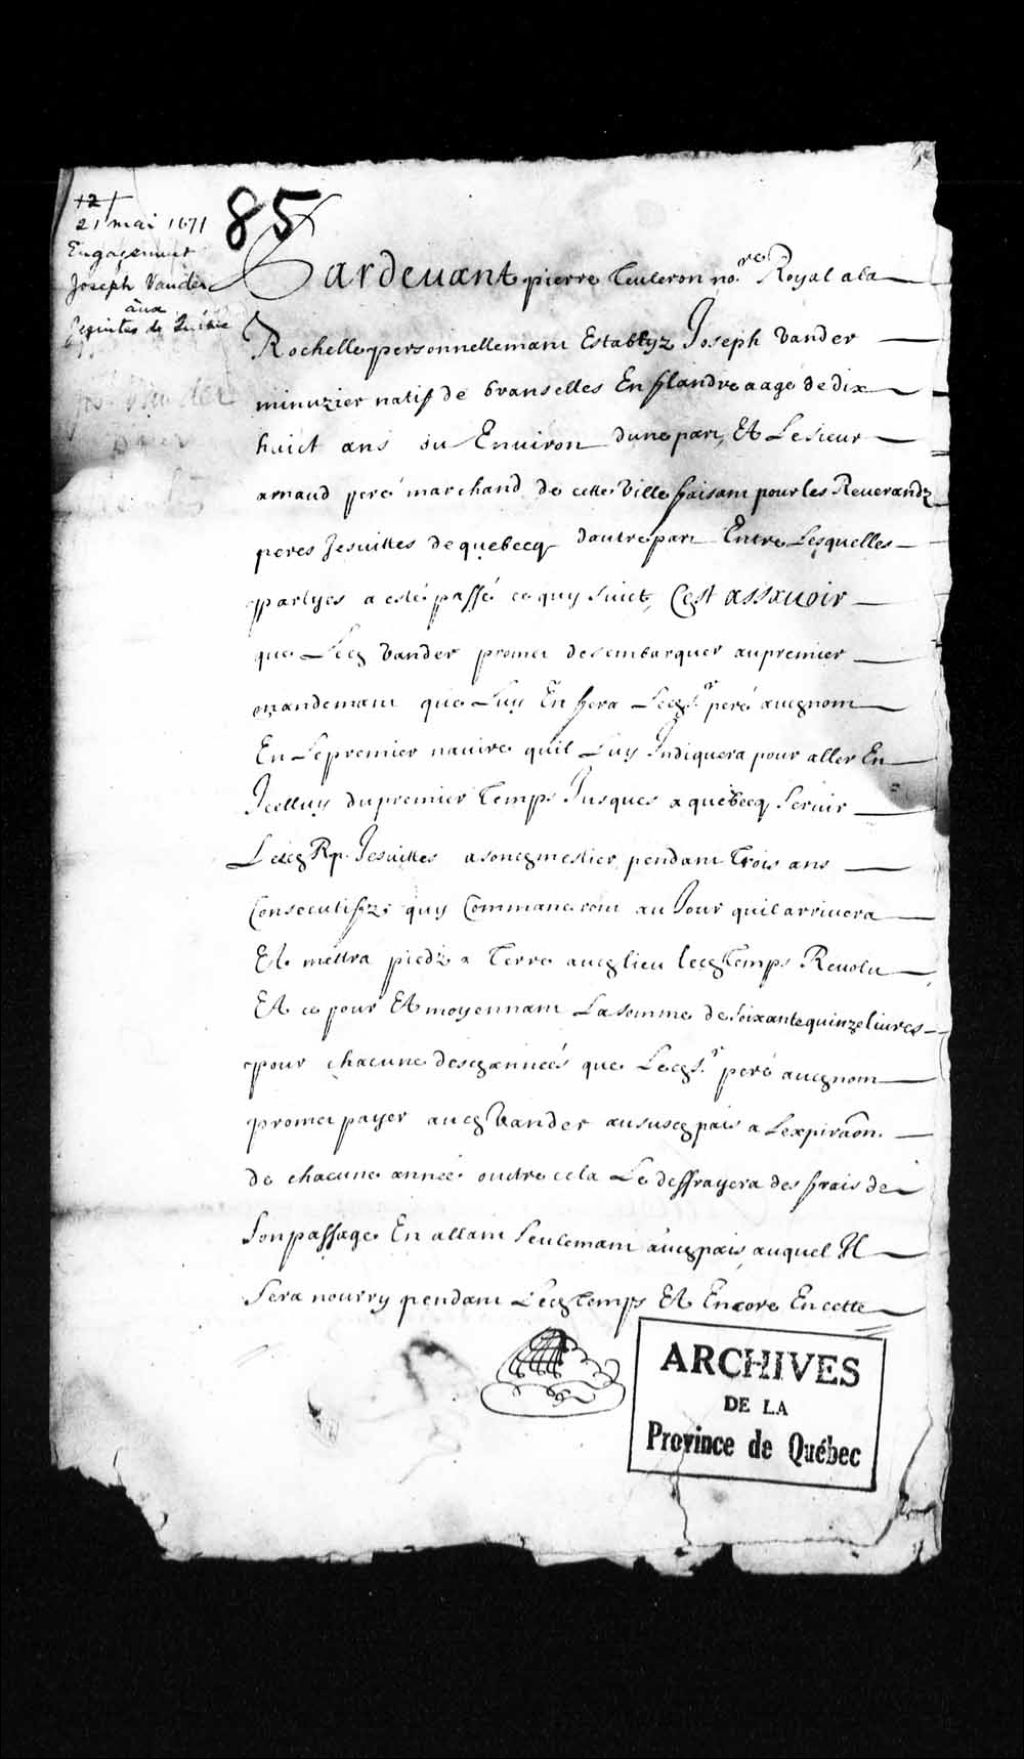 121
21 mai 1671
Engagement
Joseph Vander
aux
Jesuites de Québec
85
Pardevant pierre Teuleron no.re Royal a la
Rochelle personnellemant Establyz Joseph Vander
minuzier natif de bruxselles En flandre aagé de dix
huict ans ou Environ dune part, Et Le sieur
arnaud peré marchand de cette Ville faisant pour les Reuerandz
peres Jesuittes de quebecq dautre part Entre Lesquelles
partyes a esté passé ce quy suict, Cest assauoir
que Led Vander promet desembarquer au premier
mandemant que Luy En fera Led S.r peré aud nom
En Le premier nauire quil Luy Indiquera pour aller En
Icelluy du premier Temps Jusques a quebecq Seruir
Lesd Rp. Jesuittes a sond mestier pendant Trois ans
Consecutifz quy Commanceront au Jour quil arriuera
Et mettra piedz a Terre aud lieu led Temps Reuolu
Et ce pour Et moyennant La somme de soixante quinze liures
pour chacune desd années que Led S.r peré aud nom
promet payer aud Vander au susd pais a Lexpiraon
de chacune année outre cela Le deffrayera des frais de
Son passage En allant Seulemant aud pais auquel Il
Sera nourry pendant Led Temps Et Encore En cette
ARCHIVES
DE LA
Province de Québec